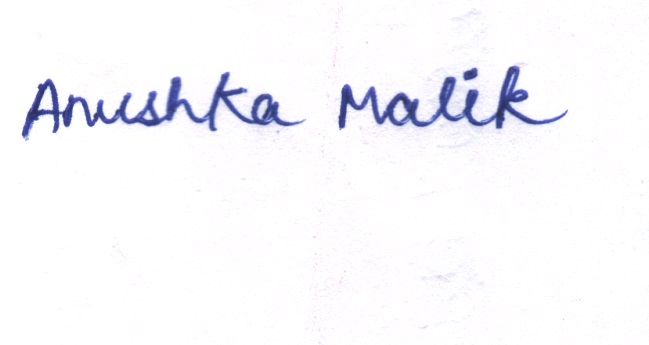 Anushka Malik